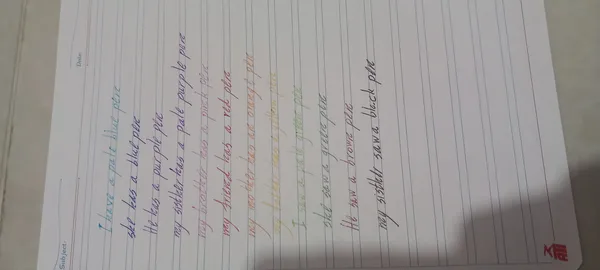 Date:
Subject:
I have a pale blue pene
she has a blue pene
He has a purple pene
my sisther has a pale purple pene
my brother has a pinck pene
my friend has a red pene
my mother has an orange pene
my has a pene
I saw a pale green pene
she saw a green pene
He saw a brown pene
my sisther saw a black pene